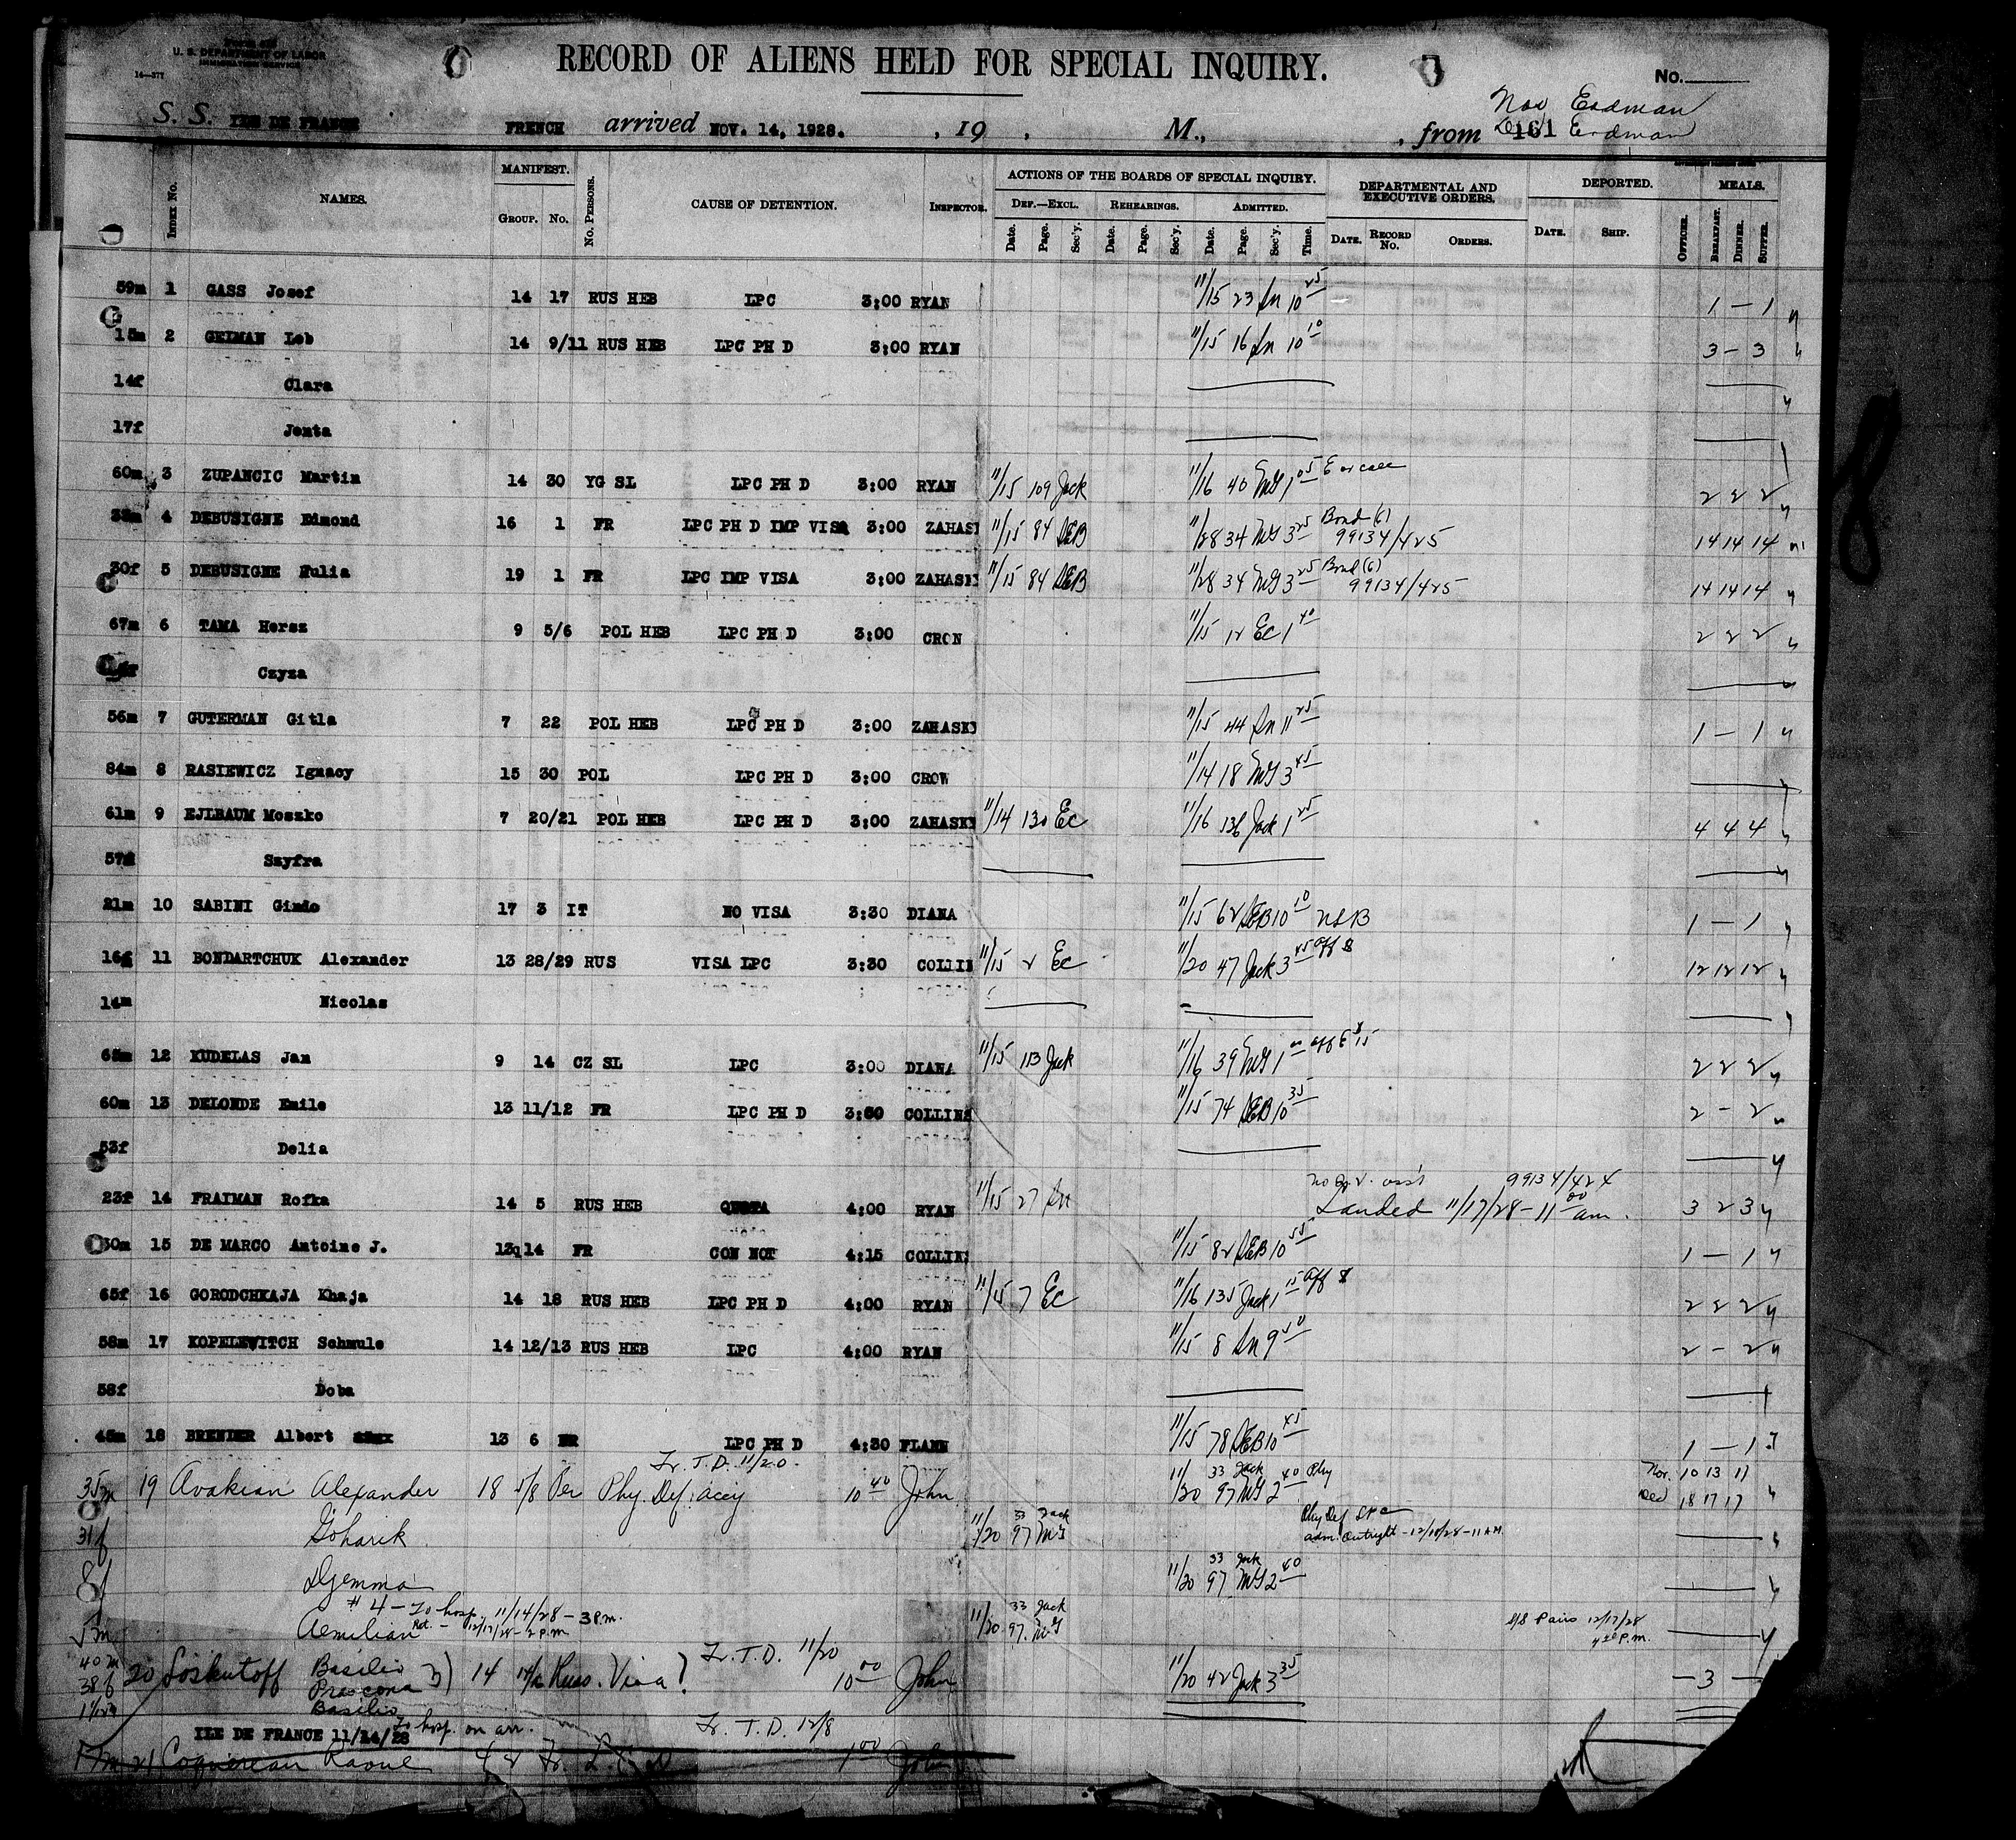 U. S. DEPARTMENT OF LABOR
IMMIGRATION SERVICE
14—377
RECORD OF ALIENS HELD FOR SPECIAL INQUIRY.
No.
S. S. YLE DE FRANCE FRENCH arrived NOV. 14, 1928. , 19 , M., , from 161
Erdman
Erdman
Index No. NAMES. MANIFEST. GROUP. NO. No. PERSONS. CAUSE OF DETENTION. INSPECTOR. ACTIONS OF THE BOARDS OF SPECIAL INQUIRY. DEPARTMENTAL AND EXECUTIVE ORDERS. DEPORTED. MEALS.
DEF.—EXCL. REHEARINGS. ADMITTED.
Date. Page. Sec'y. Date. Page. Sec'y. Date. Page. Sec'y. Time. DATE. RECORD NO. ORDERS. DATE. SHIP. OFFICER. BREAKFAST. DINNER. SUPPER.
59m 1 GASS Josef 14 17 RUS HEB LPC 3:00 RYAN 11/15 23 10 25 1 — 1
15m 2 GELMAN Leb 14 9/11 RUS HEB LPC PH D 3:00 RYAN 11/15 16 10 10 3 — 3
14f Clara
17f Jenta
60m 3 ZUPANCIC Martin 14 30 YG SL LPC PH D 3:00 RYAN 11/15 109 Jack 11/16 40 MG 1 05 2 2 2
33m 4 DEBUSIGNE Edmond 16 1 FR LPC PH D IMP VISA 3:00 ZAHASK 11/15 84 DEB 11/28 34 MG 3 25 Bond (6) 99134/425 14 14 14
30f 5 DEBUSIGNE Hulia 19 1 FR LPC IMP VISA 3:00 ZAHASK 11/15 84 DEB 11/28 34 MG 3 25 Bond (6) 99134/425 14 14 14
67m 6 TAMA Hersz 9 5/6 POL HEB LPC PH D 3:00 CRON 11/15 12 EC 1 40 2 2 2
Czyza
56m 7 GUTERMAN Gitla 7 22 POL HEB LPC PH D 3:00 ZAHASKY 11/15 44 11 25 1 — 1
84m 8 RASIEWICZ Ignacy 15 30 POL LPC PH D 3:00 CROW 11/14 18 MG 3 45
61m 9 EJLBAUM Moszko 7 20/21 POL HEB LPC PH D 3:00 ZAHASKY 11/14 130 EC 11/16 136 Jack 1 25 4 4 4
57f Szyfra
21m 10 SABINI Gindo 17 3 IT NO VISA 3:30 DIANA 11/15 62 DEB 10 10 1 — 1
16 11 BONDARTCHUK Alexander 13 28/29 RUS VISA LPC 3:30 COLLIN 11/15 2 EC 11/20 47 Jack 3 45 aff 12 12 12
14m Nicolas
65m 12 KUDELAS Jan 9 14 CZ SL LPC 3:00 DIANA 11/15 113 Jack 11/16 39 MG 1 aff 2 2 2
60m 13 DELONDE Emile 13 11/12 FR LPC PH D 3:00 COLLINS 11/15 74 DEB 10 35 2 - 2
53f Delia
23f 14 FRAIMAN Rofka 14 5 RUS HEB QUOTA 4:00 RYAN 11/15 27 99134/424 Landed 11/17/28 - 11 00 am. 3 2 3
30m 15 DE MARCO Antoine J. 13 14 FR CON NOT 4:15 COLLINS 11/15 82 DEB 10 55 1 — 1
65f 16 GORODCHKAJA Khaja 14 18 RUS HEB LPC PH D 4:00 RYAN 11/15 7 EC 11/16 135 Jack 1 15 aff 2 2 2
58m 17 KOPELEWITCH Schmule 14 12/13 RUS HEB LPC 4:00 RYAN 11/15 8 9 50 2 - 2
58f Doba
45m 18 BRENDER Albert 13 6 FR LPC PH D 4:30 FLANN 11/15 78 DEB 10 45 1 — 1
Tr. T.D. 11/20.
35m 19 Avakian Alexander 18 5/8 Per Phy. Def. 10 40 John 11/20 33 Jack 97 MG 2 40 Phy Nov. 10 13 11 Dec 18 17 17
31f Goharik 11/20 33 Jack 97 MG Phy Def LPC adm. Outright - 12/18/28 - 11 AM
8f Djemma 11/20 33 Jack 97 MG 2 40
# 4 - To hosp. 11/14/28 - 3 P.M.
5m Aemilian Ret. - 12/17/28 - 2 P.M. 11/20 33 Jack 97 MG S/S Paris 12/17/28 4 P.M.
Tr. T.D. 11/20
40m 20 Loskutoff Basilio 3) 14 Russ. Visa? 10 00 John 11/20 42 Jack 3 35 — 3 —
38f Prascona
Basilio
ILE DE FRANCE 11/14/28 To hosp. on arr. Tr. T.D. 12/8
21 Coquereau Raoul 4 2 Fr. 1 00 John